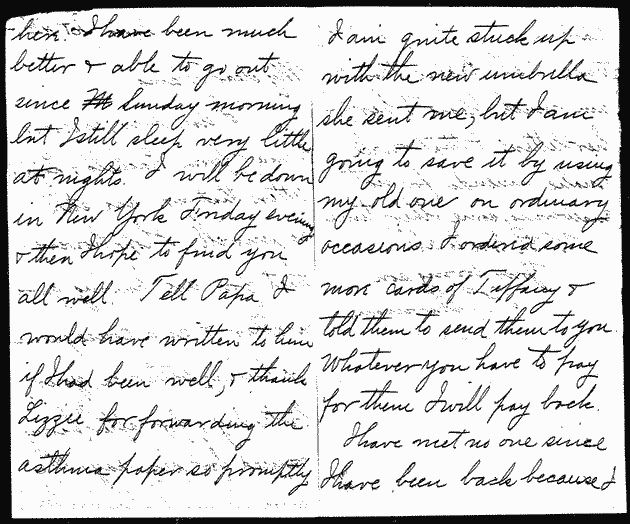 here. I have been much
better & able to go out
since Sunday morning
but I still sleep very little
at nights. I will be down
in New York Friday evening
& then I hope to find you
all well. Tell Papa I
would have written to him
if I had been well, & thank
Lizzie for forwarding the
asthma paper so promptly
I am quite stuck up
with the new umbrella
she sent me, but I am
going to save it by using
my old one on ordinary
occasions. I ordered some
more cards of Tiffany &
told them to send them to you.
Whatever you have to pay
for them I will pay back.
I have met no one since
I have been back because I